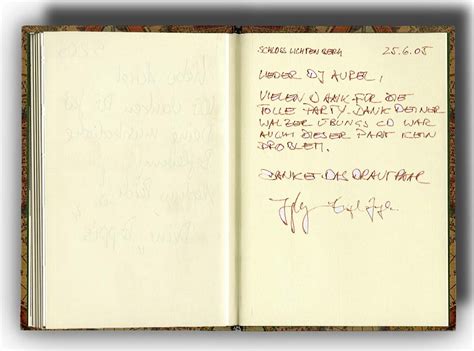 SCHLOSS LICHTENBERG 25.6.05
LIEBER DJ AUREL,
VIELEN DANK FÜR DIE
TOLLE PARTY. DANK DEINER
WALZER ÜBUNGS CD WAR
AUCH DIESER PART KEIN
PROBLEM.
DANKE! DAS BRAUTPAAR